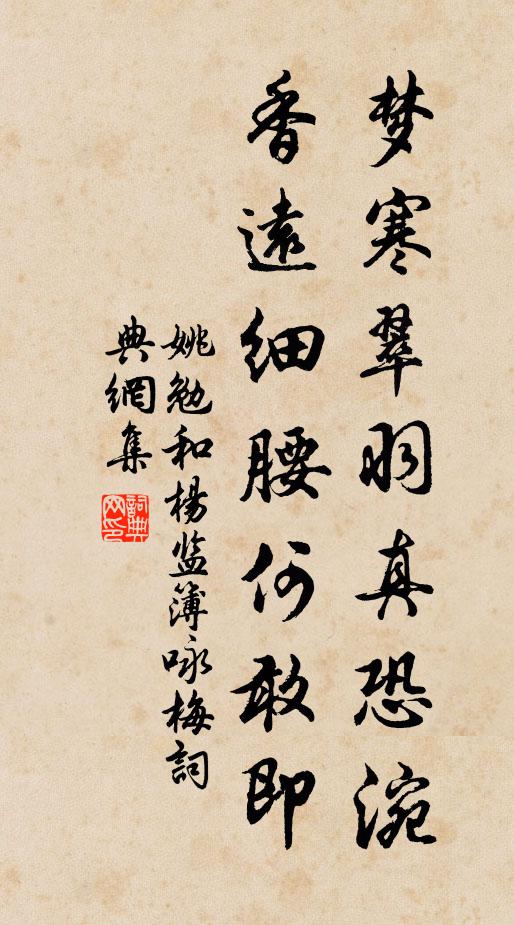 梦寒翠羽真恐涴
香遠细腰何敢即
姚勉和楊监簿咏梅詞
典網集
詞典网印